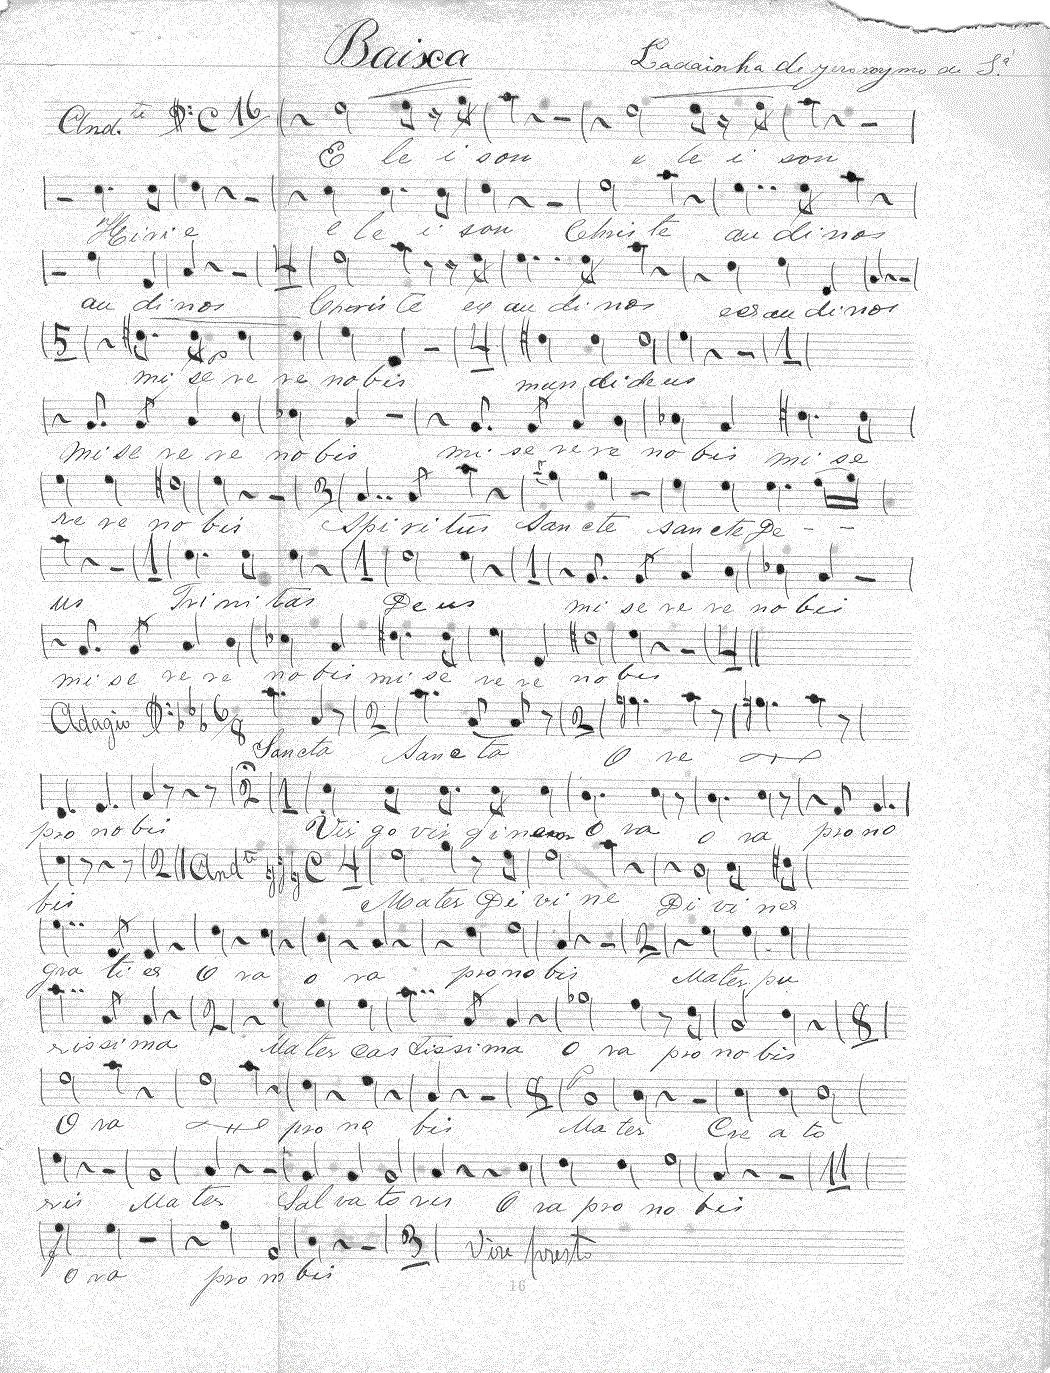 Baixa
Ladainha de Jeronymo de S.ª
And.te C 16
E le i son e le i son
Kirie e le i son Christe au di nos
4
au di nos Christe ex au di nos ex au di nos
5 4 1
mi se re re no bis mun di deus
mi se re re no bis mi se re re no bis mi se
3
re re no bis Spiritus Sancte sancte De - -
1 1 1
us Trinitas Deus mi se re re no bis
4
mi se re re no bis mi se re re no bis
Adagio 6/8 2 2
Sancta Sancta O re
2 1
pro no bis Virgo virginum O ra o ra pro no
2 And.te C 4
bis Mater Divine Divine
2
gra ti e O ra o ra pro no bis Mater pu
2 8
rissima Mater castissima O ra pro no bis
8
O ra pro no bis Mater Cre a to
11
ris Mater Sal va to ris O ra pro no bis
3 Vire presto
O ra pro no bis
16